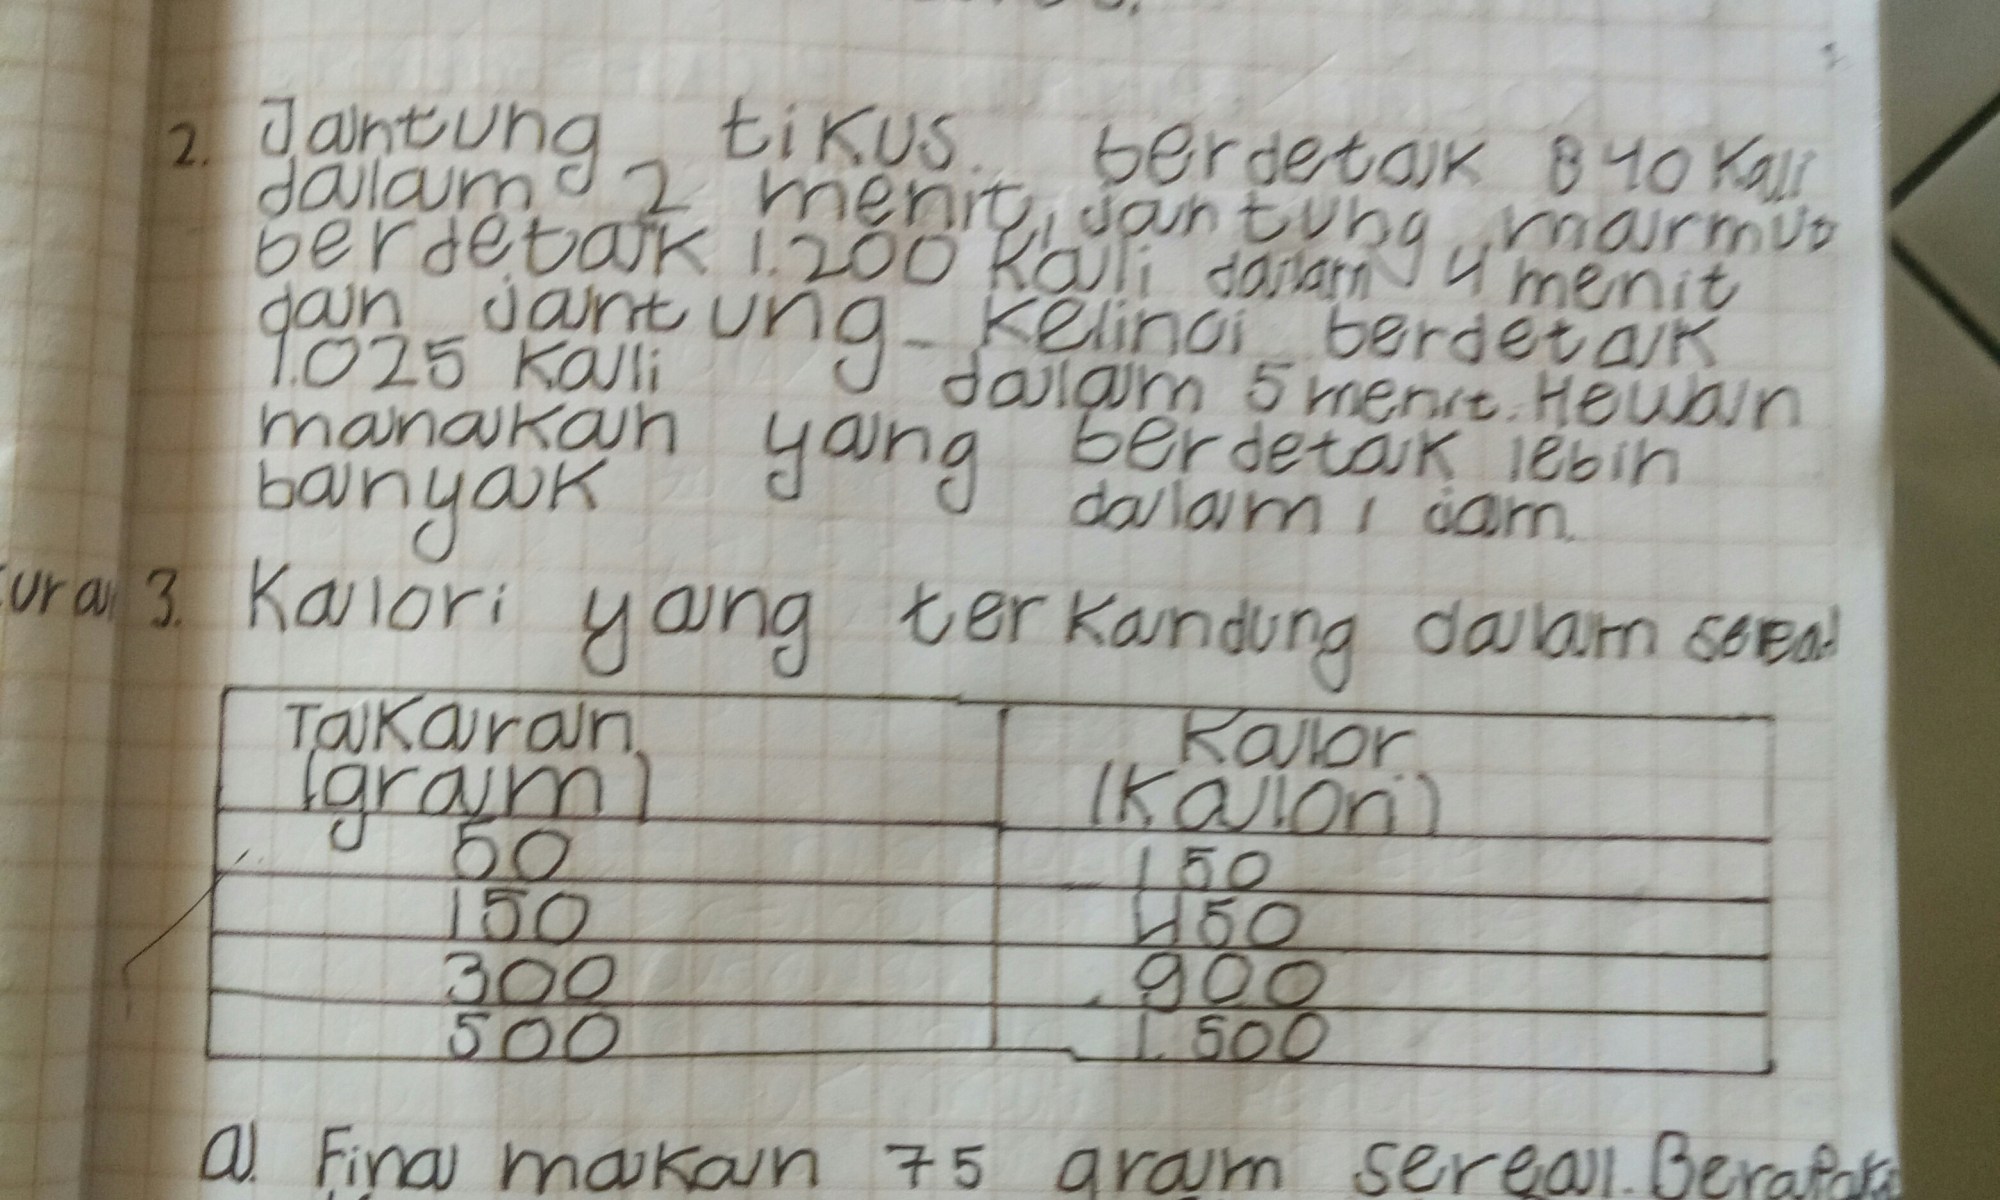 2. Jantung tikus berdetak 840 kali
dalam 2 menit, jantung marmut
berdetak 1.200 kali dalam 4 menit
dan jantung kelinci berdetak
1.025 kali dalam 5 menit. Hewan
manakah yang berdetak lebih
banyak dalam 1 jam.
ura 3. Kalori yang terkandung dalam sereal
Takaran Kalor
(gram) (Kalori)
50 150
150 450
300 900
500 1.500
a. Fina makan 75 gram sereal. Berapaka